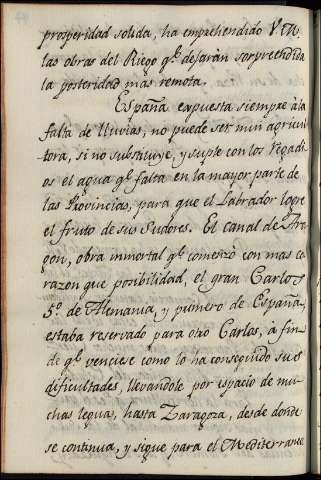 prosperidad solida, ha emprehendido V.E.
las obras del Riego q.e dejaràn sorprendida
la posteridad mas remota.
España expuesta siempre à la
falta de lluvias, no puede ser mui agricul
tora, si no substituye, y suple con los Regadi
os el agua q.e falta en la mayor parte de
las Provincias, para que el Labrador logre
el fruto de sus Sudores. El canal de Ara
gon, obra inmortal q.e comenzò con mas co
razon que posibilidad, el gran Carlos
5.o de Alemania, y primero de España,
estaba reservado para otro Carlos, à fin
de q.e venciese como lo ha conseguido sus
dificultades, llevandole por espacio de mu
chas leguas, hasta Zaragoza, desde donde
se continua, y sigue para el Mediterraneo